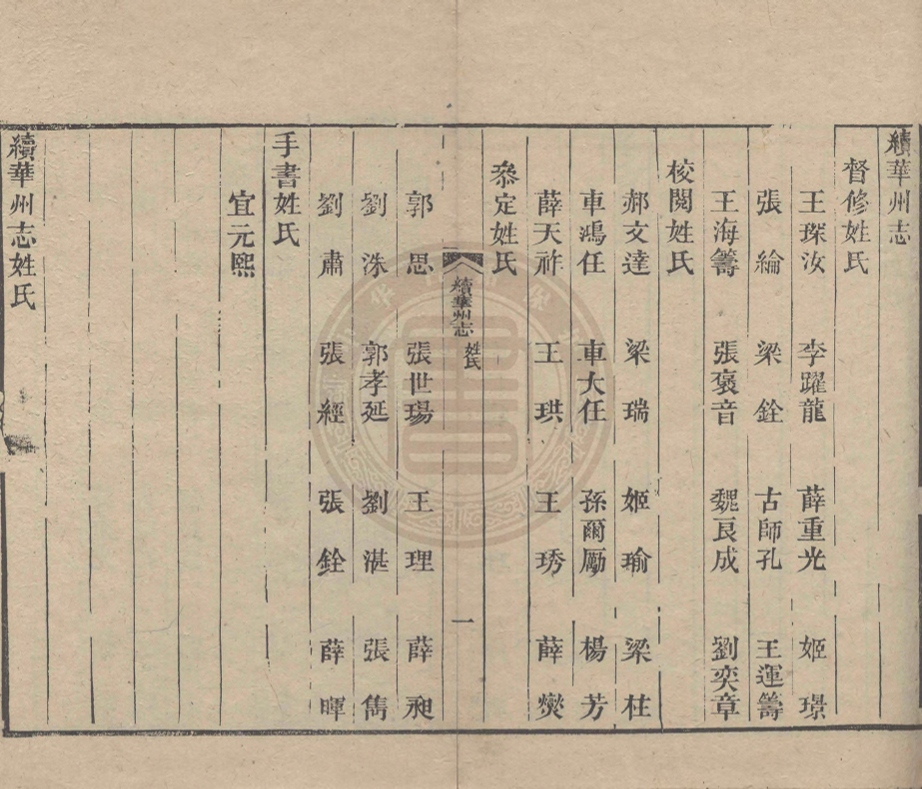 續華州志
督修姓氏
王琛汝 李躍龍 薛重光 姬璟
張綸 梁銓 古師孔 王運籌
王海籌 張褒音 魏良成 劉奕章
校閱姓氏
郝文達 梁瑞 姬瑜 梁柱
車鴻任 車大任 孫爾勵 楊芳
薛天祚 王珙 王琇 薛爕
叅定姓氏
續華州志 姓氏 一
郭思 張世瑒 王理 薛昶
劉洙 郭孝延 劉湛 張雋
劉肅 張經 張銓 薛暉
手書姓氏
宜元熙
續華州志姓氏